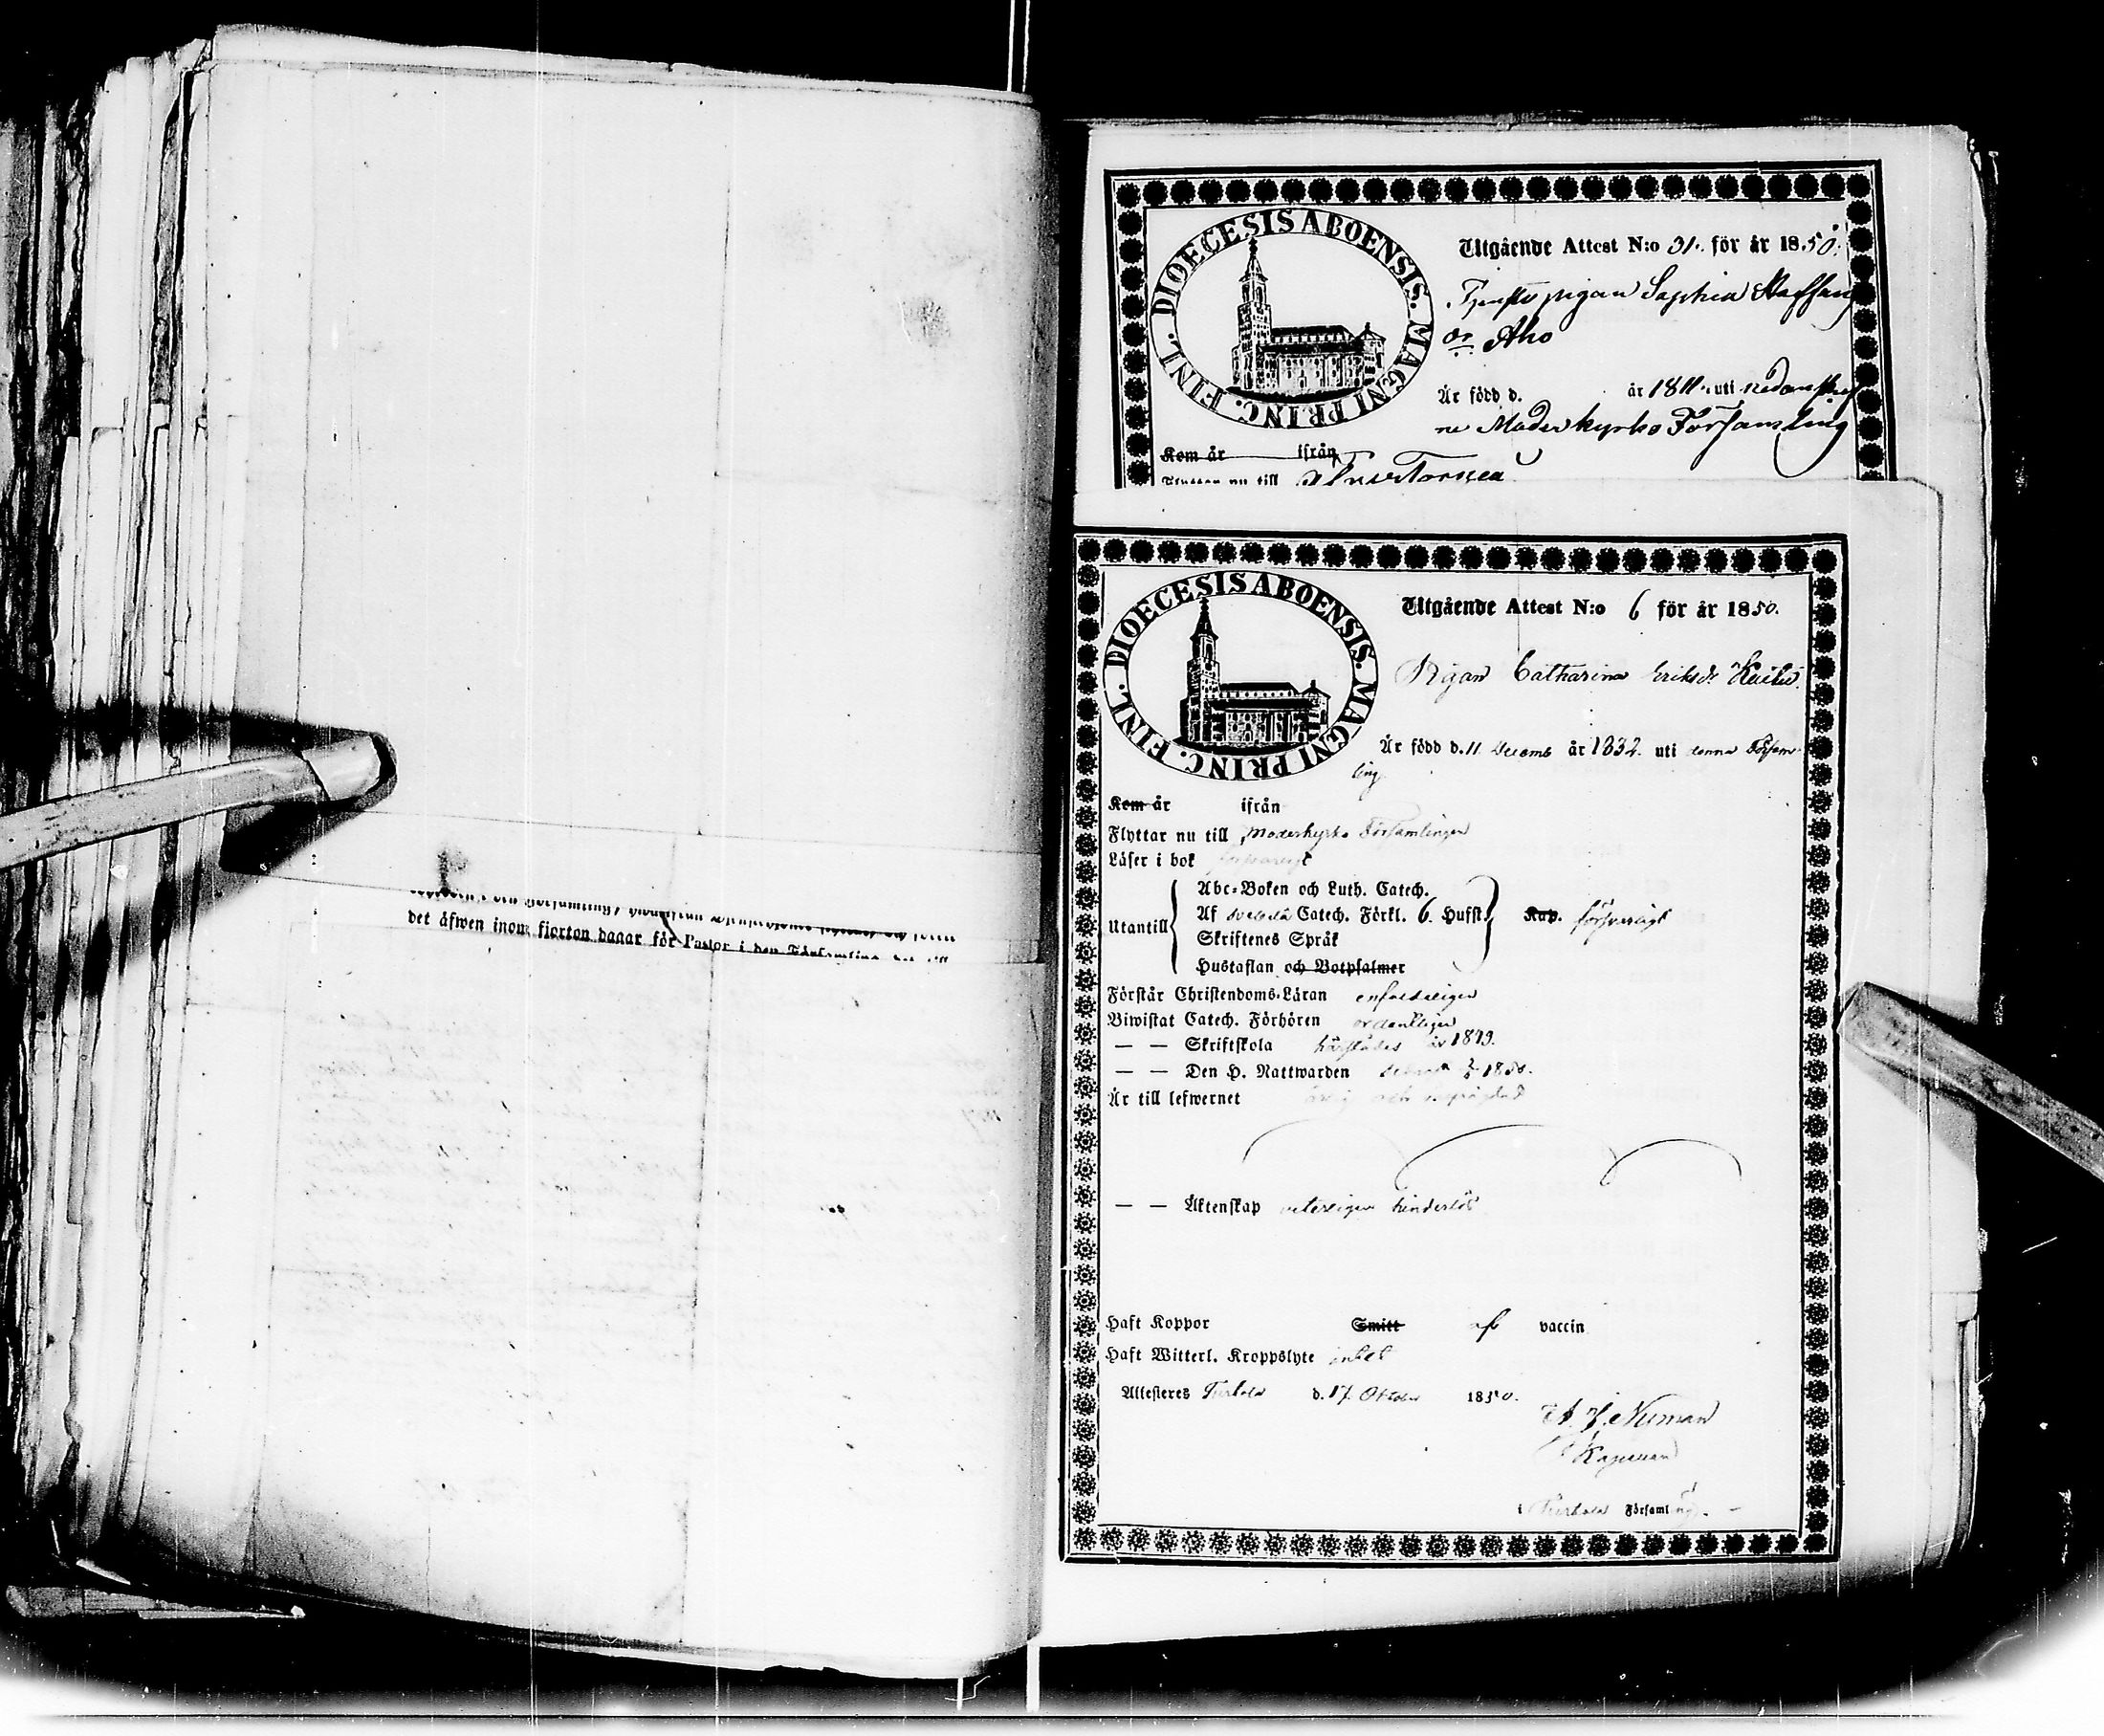 det äfwen inom fjorton dagar för Pastor i den Församling
DIOECESIS ABOENSIS. MAGNI PRINC. FINL.
Utgående Attest N:o 31. för år 1850.
Tjenstepigan Sophia Staffans
dr Aho
Är född d. år 1811. uti nedanskref
ne Moderkyrko Församling
Kom år ifrån
Flyttar nu till Öfver Torneå
DIOECESIS ABOENSIS. MAGNI PRINC. FINL.
Utgående Attest N:o 6 för år 1850.
Pigan Catharina Eriksdr
Är född d. 11 Decemb år 1832. uti denna Försam
ling
Kom år ifrån
Flyttar nu till Moderkyrko Församlingen
Läser i bok försvarligt
Abc-Boken och Luth. Catech.
Af Svebelii Catech. Förkl. 6. Hufst.
Utantill Kap. försvarligt
Skriftenes Språk
Hustaflan och Botpsalmer
Förstår Christendoms-Läran enfaldeligen
Biwistat Catech. Förhören ordentligen
— — Skriftskola härstädes år 1849.
— — Den H. Nattwarden 1850.
Är till lefwernet ärlig och
— — Äktenskap veterligen hinderlös
Haft Koppor Smitt af vaccin
Haft Witterl. Kroppslyte intet
Attesteres Turtola d. 17 Oktober 1850.
Numan
Kapellan
i Turtola Församling.